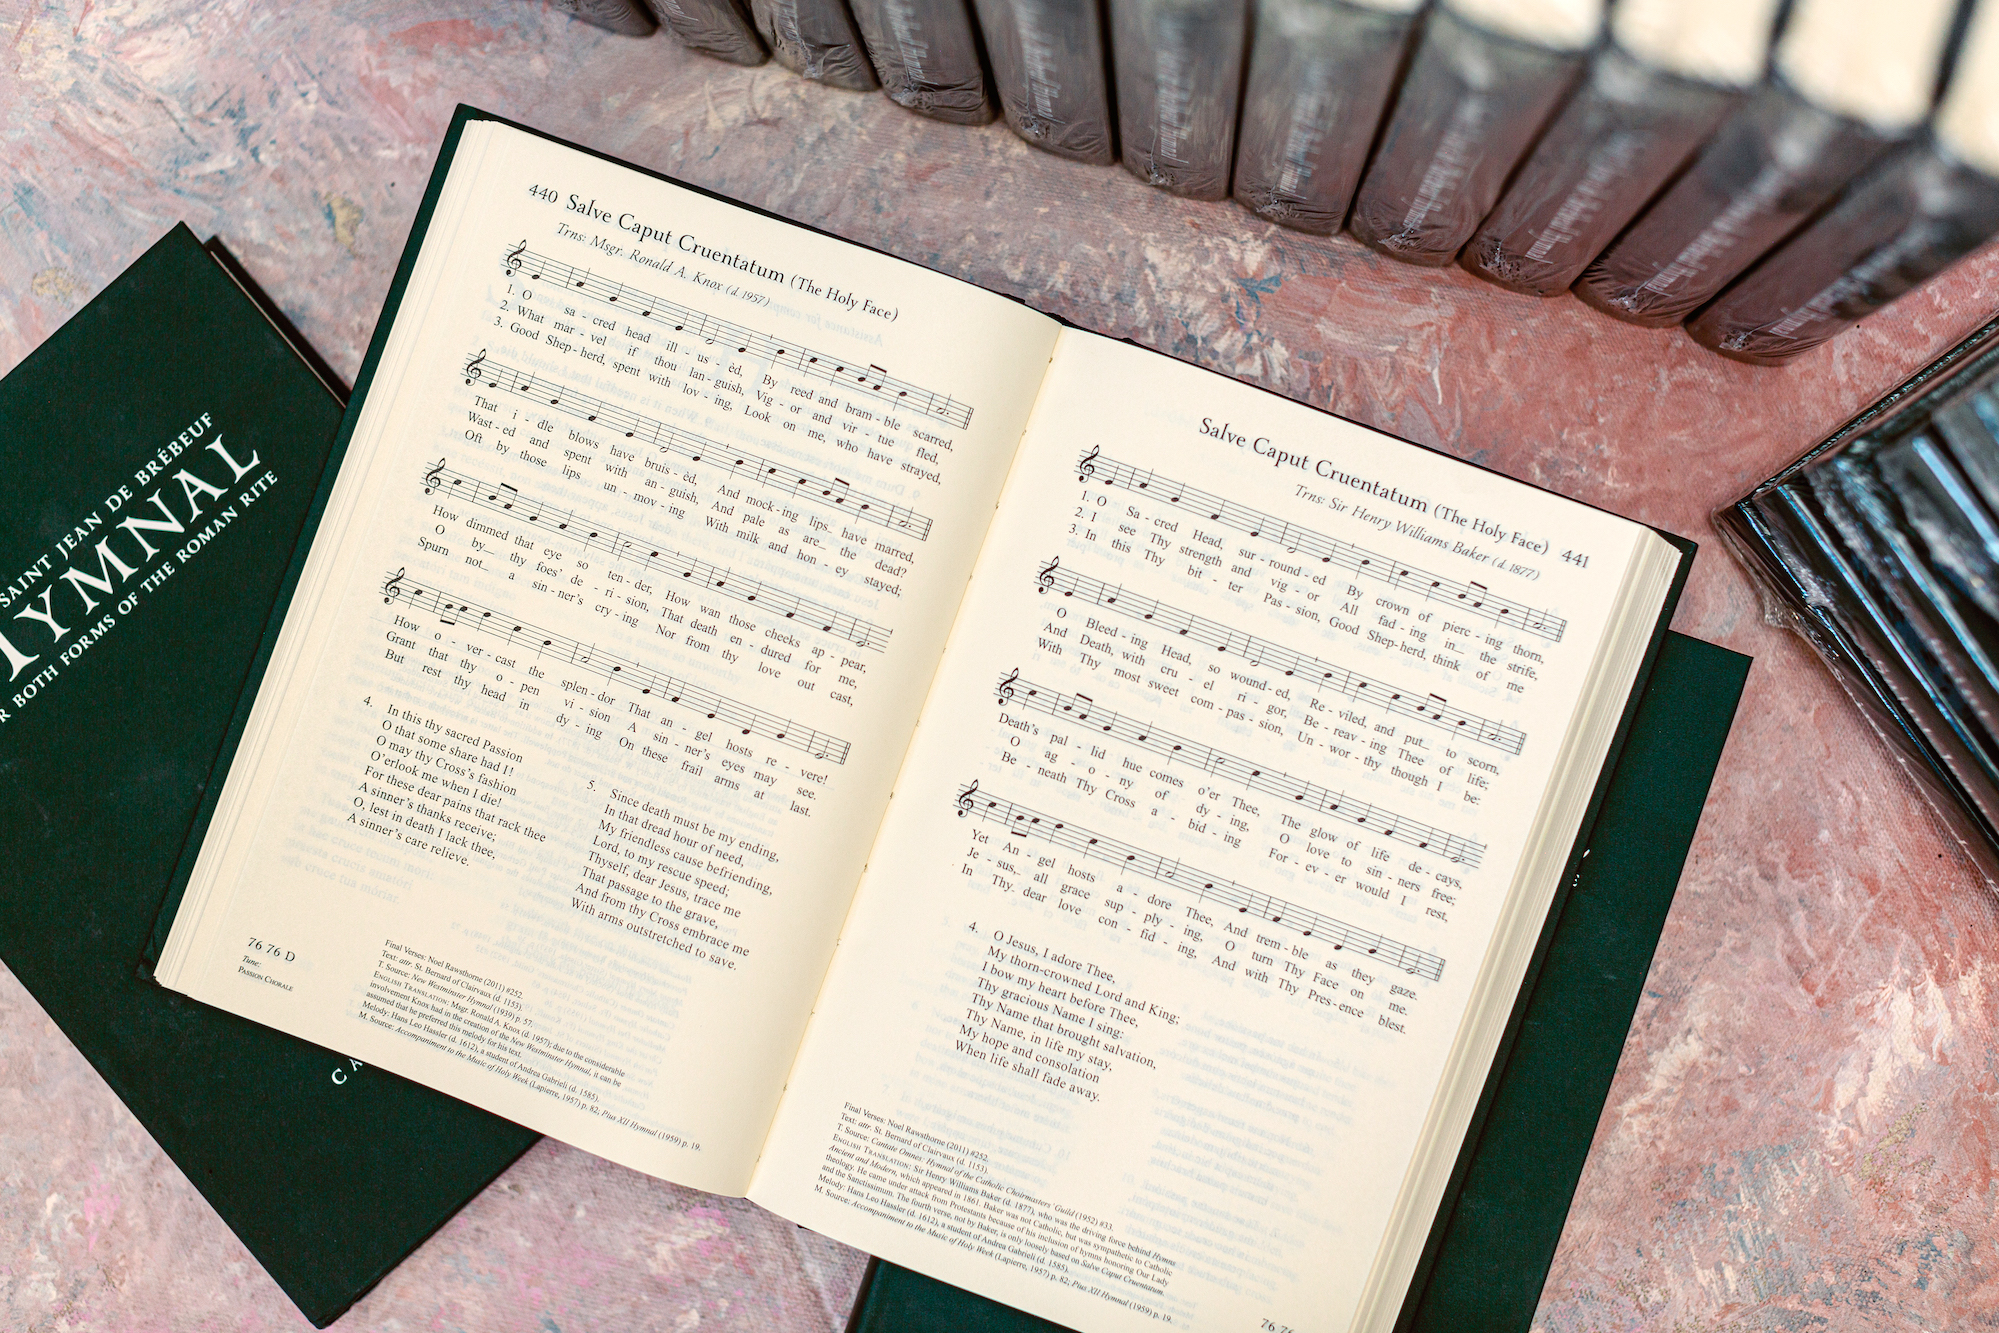 SAINT JEAN DE BRÉBEUF
HYMNAL
R BOTH FORMS OF THE ROMAN RITE
CA
440 Salve Caput Cruentatum (The Holy Face)
Trns: Msgr. Ronald A. Knox (d. 1957)
1. O sa - cred head ill - us - ed, By reed and bram - ble scarred,
2. What mar - vel if thou lan - guish, Vig - or and vir - tue fled,
3. Good Shep - herd, spent with lov - ing, Look on me, who have strayed,
That i - dle blows have bruis - èd, And mock - ing lips_ have marred,
Wast - ed and spent with an - guish, And pale as are_ the dead?
Oft by those lips un - mov - ing With milk and hon - ey stayed;
How dimmed that eye so ten - der, How wan those cheeks ap - pear,
O by_ thy foes' de - ri - sion, That death en - dured for me,
Spurn not_ a sin - ner's cry - ing Nor from thy love out cast,
How o - ver - cast the splen - dor That an - gel hosts re - vere!
Grant that thy o - pen vi - sion A sin - ner's eyes may see.
But rest thy head in dy - ing On these frail arms at last.
4. In this thy sacred Passion
O that some share had I!
O may thy Cross's fashion
O'erlook me when I die!
For these dear pains that rack thee
A sinner's thanks receive;
O, lest in death I lack thee,
A sinner's care relieve.
5. Since death must be my ending,
In that dread hour of need,
My friendless cause befriending,
Lord, to my rescue speed;
Thyself, dear Jesus, trace me
That passage to the grave,
And from thy Cross embrace me
With arms outstretched to save.
76 76 D
Tune:
PASSION CHORALE
Final Verses: Noel Rawsthorne (2011) #252.
Text: attr. St. Bernard of Clairvaux (d. 1153).
T. Source: New Westminster Hymnal (1939) p. 57.
ENGLISH TRANSLATION: Msgr. Ronald A. Knox (d. 1957); due to the considerable
involvement Knox had in the creation of the New Westminster Hymnal, it can be
assumed that he preferred this melody for his text.
Melody: Hans Leo Hassler (d. 1612), a student of Andrea Gabrieli (d. 1585).
M. Source: Accompaniment to the Music of Holy Week (Lapierre, 1957) p. 82; Pius XII Hymnal (1959) p. 19.
Salve Caput Cruentatum (The Holy Face) 441
Trns: Sir Henry Williams Baker (d. 1877)
1. O Sa - cred Head, sur - round - ed By crown of pierc - ing thorn,
2. I see Thy strength and vig - or All fad - ing in_ the strife,
3. In this Thy bit - ter Pas - sion, Good Shep - herd, think of me
O Bleed - ing Head, so wound - ed, Re - viled, and put_ to scorn,
And Death, with cru - el ri - gor, Be - reav - ing Thee of life;
With Thy most sweet com - pas - sion, Un - wor - thy though I be:
Death's pal - lid hue comes o'er Thee, The glow of life de - cays,
O ag - o - ny of dy - ing, O love to sin - ners free;
Be - neath Thy Cross a - bid - ing For - ev - er would I rest,
Yet An - gel hosts a - dore Thee, And trem - ble as they gaze.
Je - sus,_ all grace sup - ply - ing, O turn Thy Face on me.
In Thy_ dear love con - fid - ing, And with Thy Pres - ence blest.
4. O Jesus, I adore Thee,
My thorn-crowned Lord and King;
I bow my heart before Thee,
Thy gracious Name I sing;
Thy Name that brought salvation,
Thy Name, in life my stay,
My hope and consolation
When life shall fade away.
Final Verses: Noel Rawsthorne (2011) #252.
Text: attr. St. Bernard of Clairvaux (d. 1153).
T. Source: Cantate Omnes: Hymnal of the Catholic Choirmasters' Guild (1952) #33.
ENGLISH TRANSLATION: Sir Henry Williams Baker (d. 1877), who was the driving force behind Hymns
Ancient and Modern, which appeared in 1861. Baker was not Catholic, but was sympathetic to Catholic
theology. He came under attack from Protestants because of his inclusion of hymns honoring Our Lady
and the Sanctissimum. The fourth verse, not by Baker, is only loosely based on Salve Caput Cruentatum.
Melody: Hans Leo Hassler (d. 1612), a student of Andrea Gabrieli (d. 1585).
M. Source: Accompaniment to the Music of Holy Week (Lapierre, 1957) p. 82; Pius XII Hymnal (1959) p. 19.
76 76